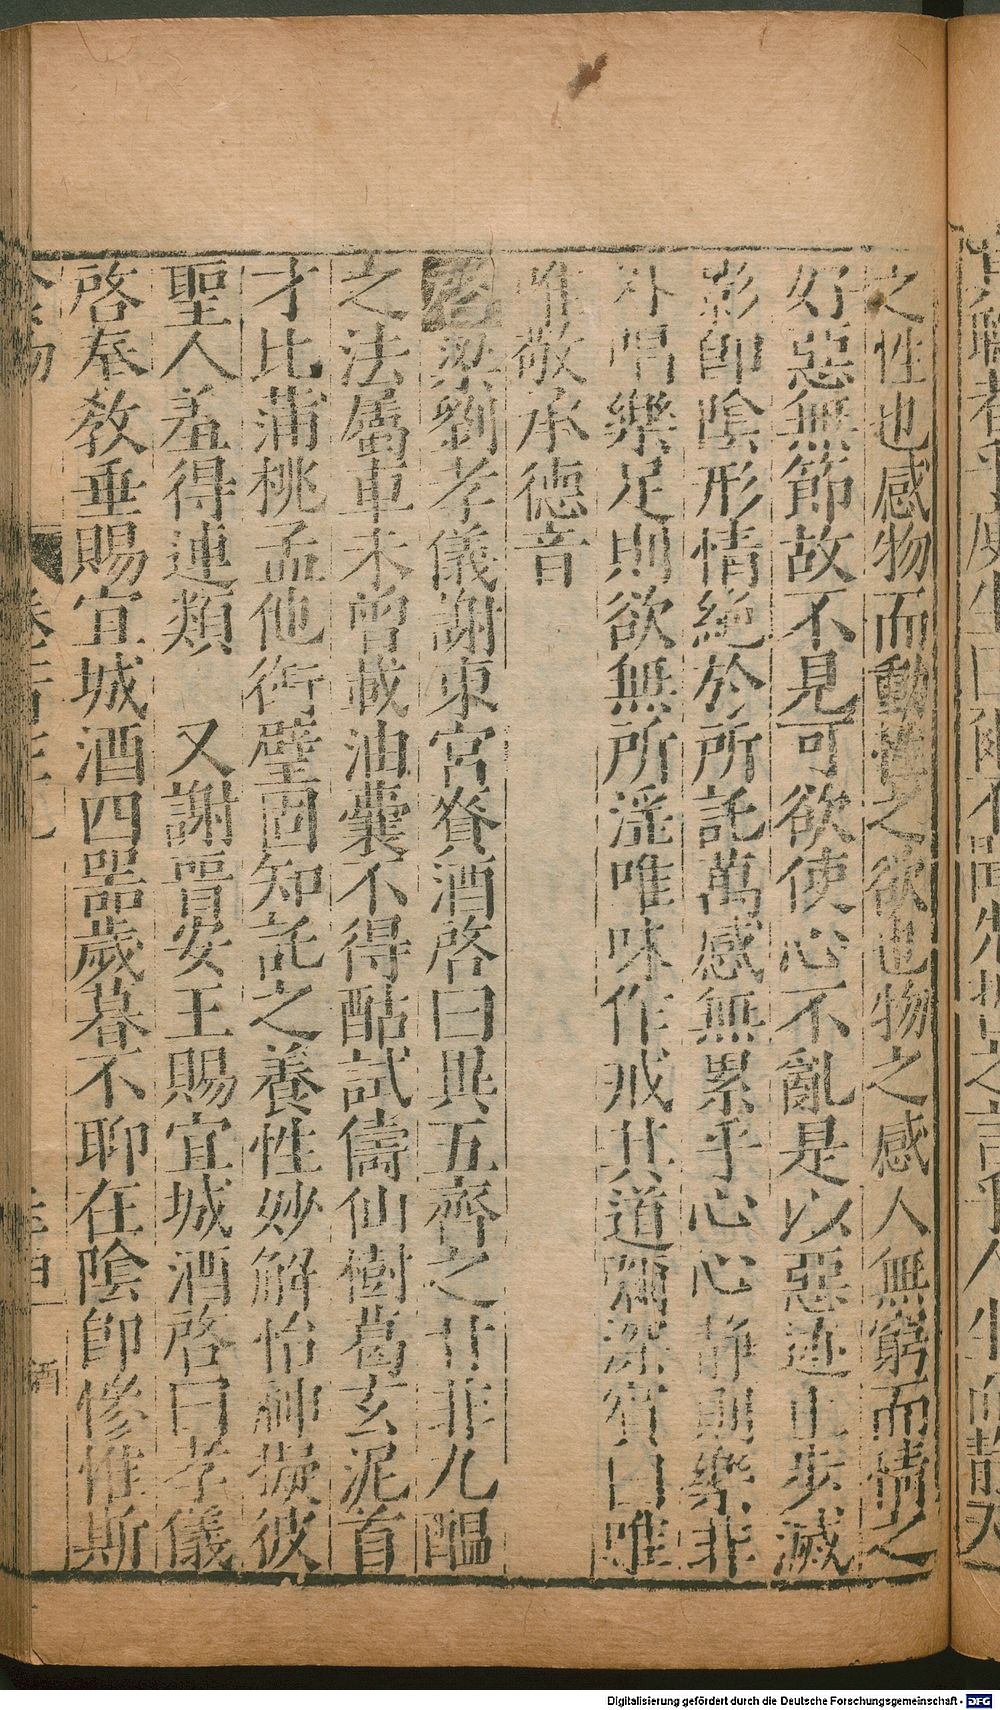 之性也感物而動性之欲也物之感人無窮而情之
好惡無節故不見可欲使心不亂是以惡迹止步滅
影即陰形情絶於所託萬感無累乎心心静則樂非
外唱樂足則欲無所淫唯味作戒其道彌深賓曰唯
唯敬承德音
啓梁劉孝儀謝東宮賚酒啓曰異五齊之甘非九醖
之法屬車未曾載油囊不得酤試儔仙樹葛玄泥首
才比蒲桃孟他銜璧固知託之養性妙解怡神擬彼
聖人羞得連類 又謝晉安王賜宜城酒啓曰孝儀
啓奉教垂賜宜城酒四噐歲暮不聊在陰即慘惟斯
酒
Digitalisierung gefördert durch die Deutsche Forschungsgemeinschaft - DFG